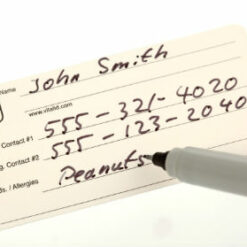 Name John Smith
www.vitalid.com
Contact #1 555-321-4020
g. Contact #2 555-123-2040
ds. / Allergies Peanuts